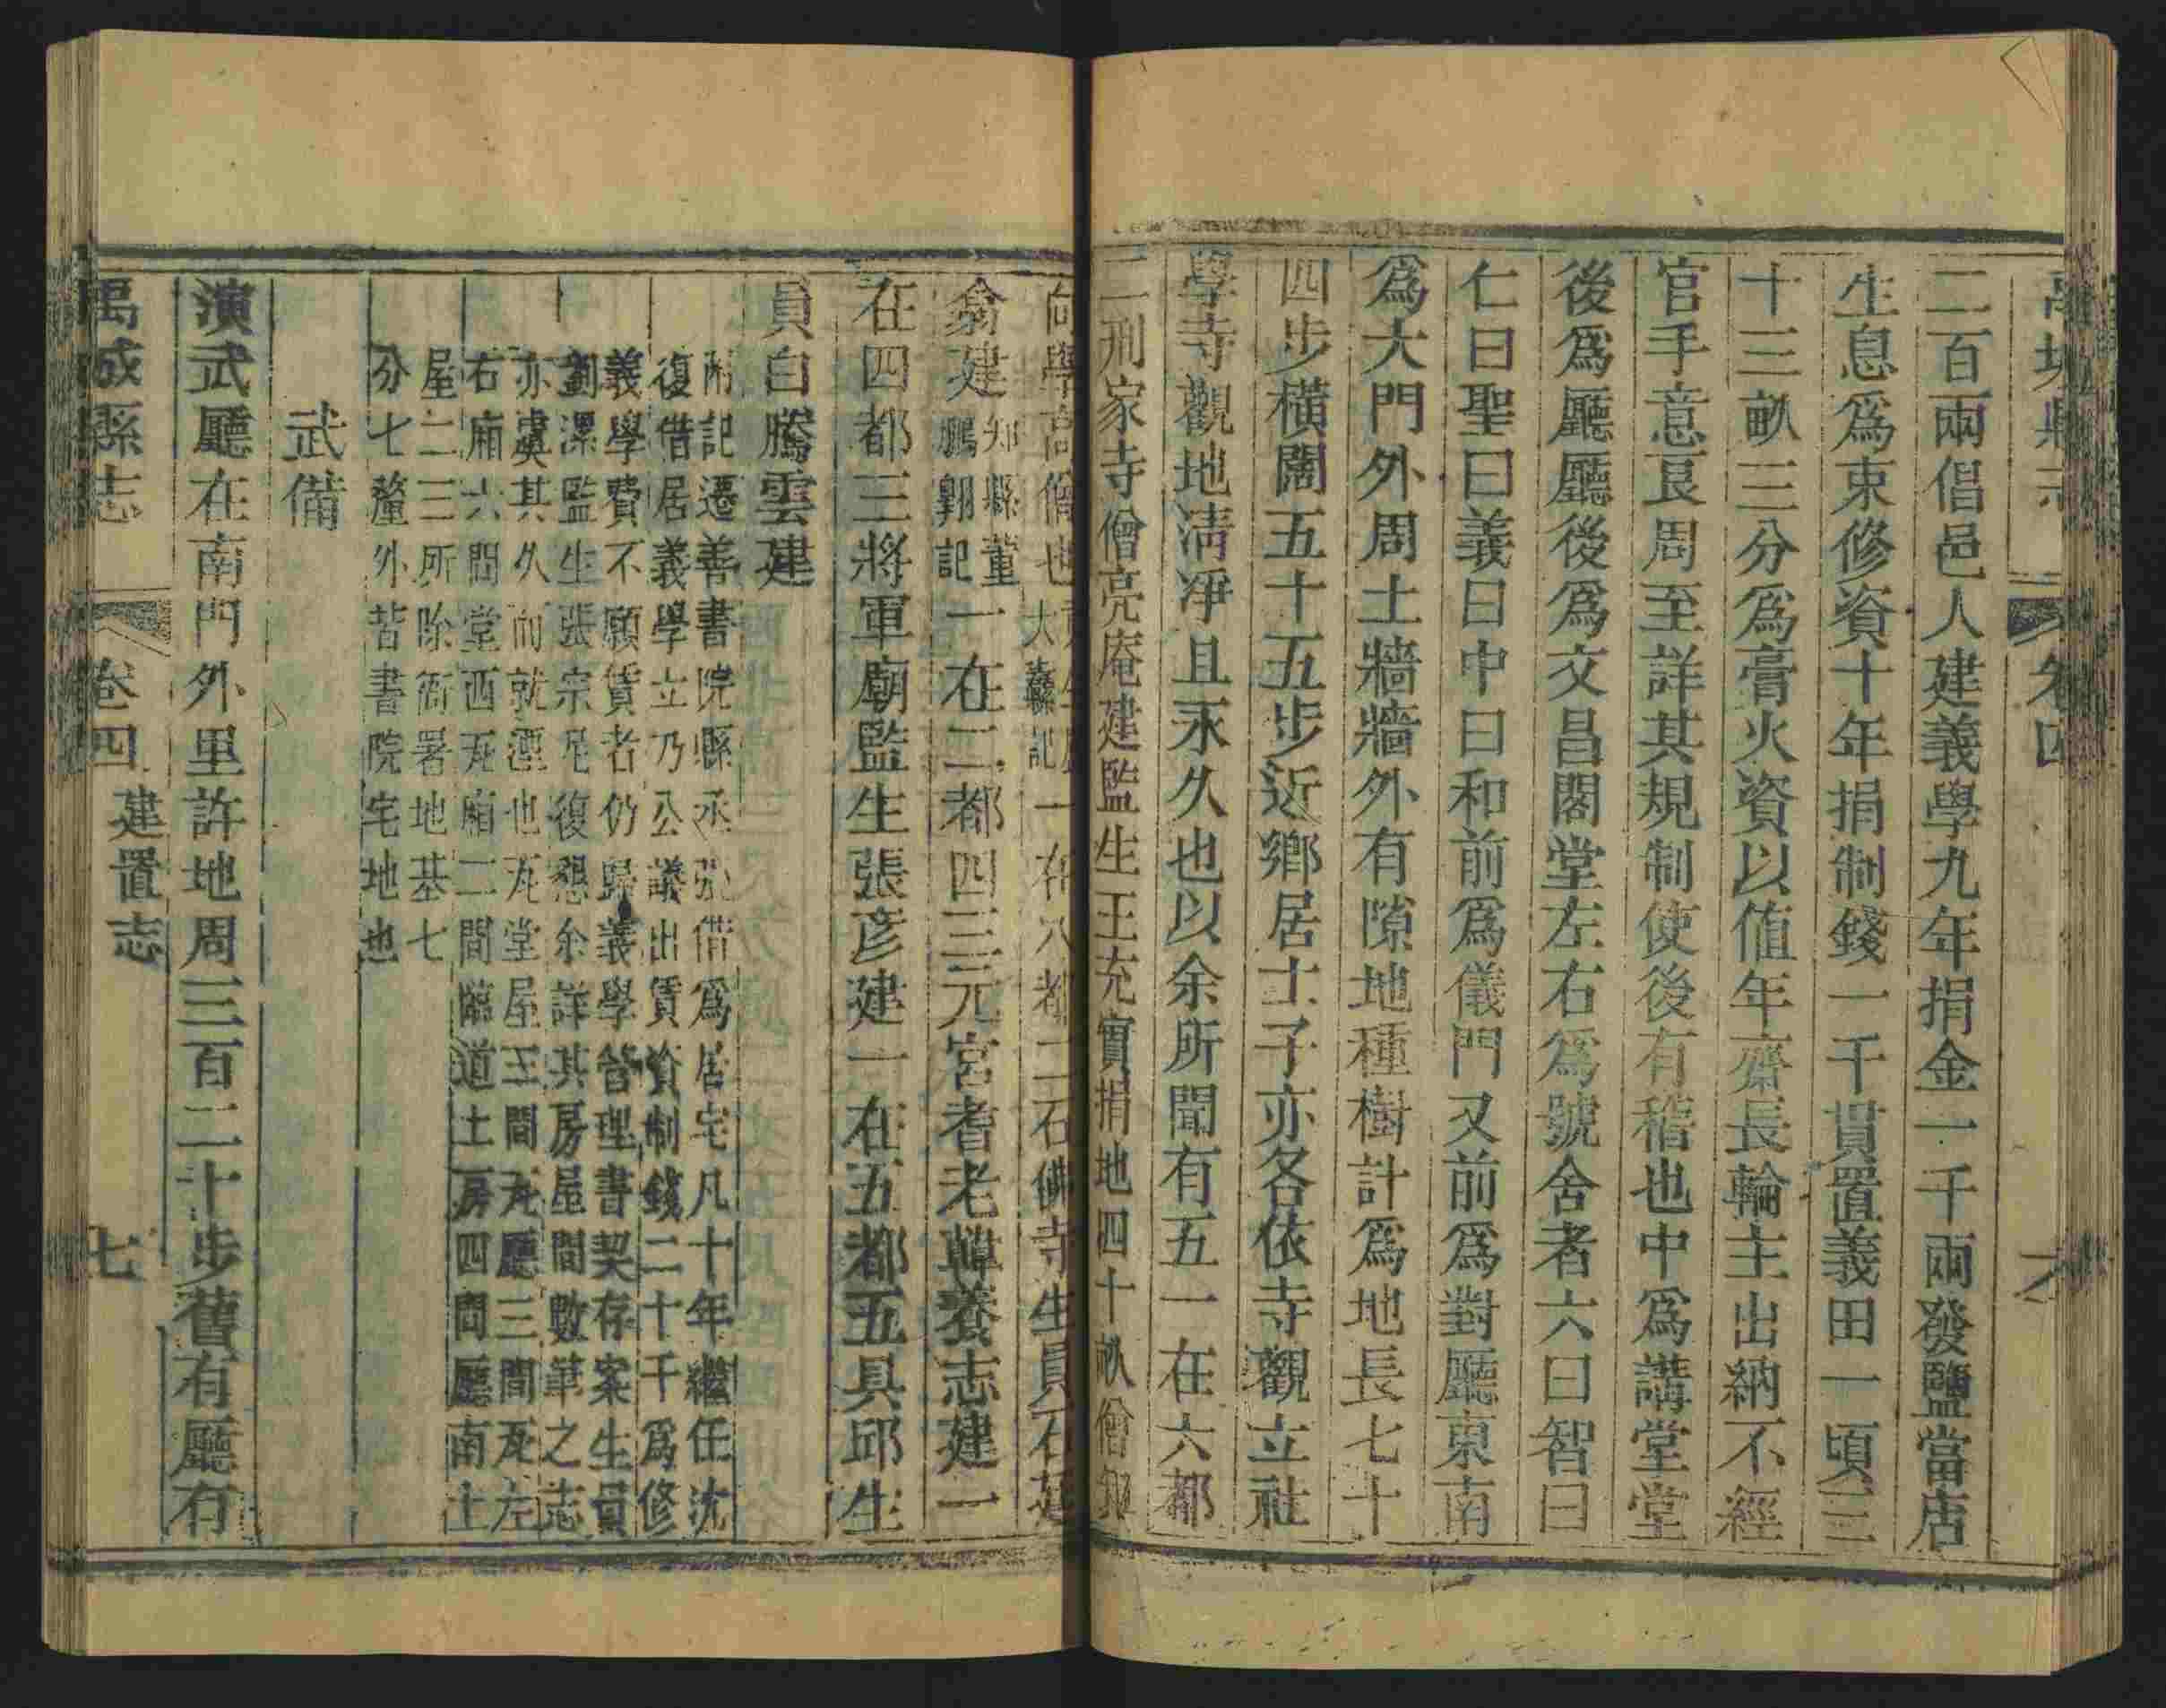 卷四
二百兩倡邑人建義學九年捐金一千兩發鹽當店
生息爲束修資十年捐制錢一千貫置義田一頃三
十三畝三分爲膏火資以值年齋長輪主出納不經
官手意良周至詳其規制使後有稽也中爲講堂堂
後爲廳廳後爲文昌閣堂左右爲號舍者六曰智曰
仁曰聖曰義曰中曰和前爲儀門又前爲對廳東南
爲大門外周土牆牆外有隙地種樹計爲地長七十
四步橫闊五十五步近鄉居士子亦各依寺觀立社
學寺觀地淸淨且永久也以余所聞有五一在六都
二刑家寺僧亮庵建監生王充實捐地四十畝僧
向學
大 記
一在八都二石佛寺生員石
建
知縣董
鵬翺記
一在二都四三元宮耆老韓養志建一
在四都三將軍廟監生張彦建一在五都五具邱生
員白騰雲建
附記遷善書院縣丞張借爲居宅凡十年繼任沈
復借居義學立乃公議出賃資制錢二十千爲修
義學費不願賃者仍歸義學管理書契存案生員
劉漯監生張宗尼復懇余詳其房屋間數筆之志
亦虞其久而就湮也瓦堂屋三間瓦廳三間瓦左
右廂六間堂西瓦廂二間臨道土房四間廳南土
屋二三所除衙署地基七
分七釐外皆書院宅地也
武備
演武廳在南門外里許地周三百二十步舊有廳有
禹城縣志
卷四
建置志
七